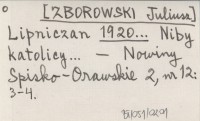 [ZBOROWSKI Juliusz]
Lipniczan 1920... Niby
katolicy... — Nowiny
Spisko-Orawskie 2, nr 12:
3-4.